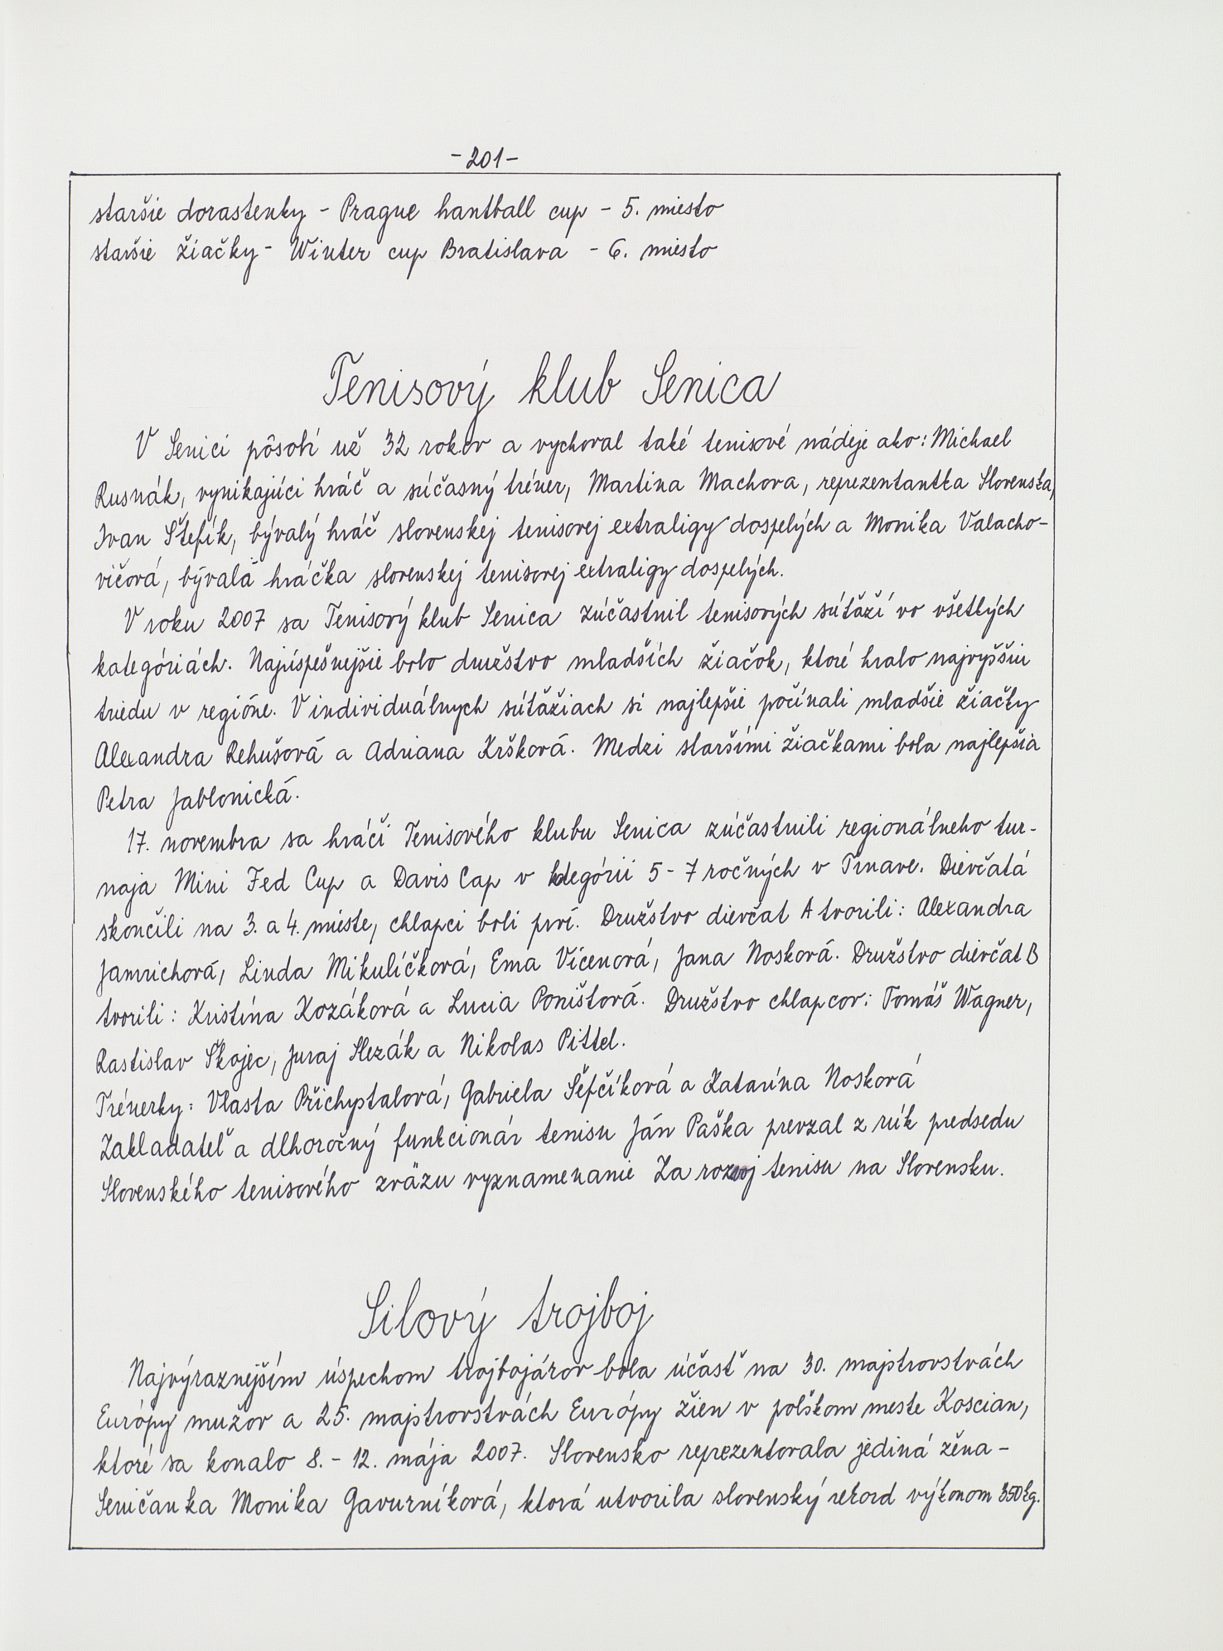 -201-
staršie dorastenky - Prague hantball cup - 5. miesto
staršie žiačky - Winter cup Bratislava - 6. miesto
Tenisový klub Senica
V Senici pôsobí už 32 rokov a vychoval také tenisové nádeje ako: Michael
Rusnák, vynikajúci hráč a súčasný tréner, Martina Machova, reprezentantka Slovenska,
Ivan Štefík, bývalý hráč slovenskej tenisovej extraligy dospelých a Monika Valacho-
vičová, bývalá hráčka slovenskej tenisovej extraligy dospelých.
V roku 2007 sa Tenisový klub Senica zúčastnil tenisových súťaží vo všetkých
kategóriách. Najúspešnejšie bolo družstvo mladších žiačok, ktoré hralo najvyššiu
triedu v regióne. V individuálnych súťažiach si najlepšie počínali mladšie žiačky
Alexandra Rehušová a Adriana Kršková. Medzi staršími žiačkami bola najlepšia
Petra Jablonická.
17. novembra sa hráči Tenisového klubu Senica zúčastnili regionálneho tur-
naja Mini Fed Cup a Davis Cap v kategórii 5 - 7 ročných v Trnave. Dievčatá
skončili na 3. a 4. mieste, chlapci boli prví. Družstvo dievčat A tvorili: Alexandra
Jamrichová, Linda Mikulíčková, Ema Vícenová, Jana Nosková. Družstvo dievčat B
tvorili: Kristína Kozáková a Lucia Poništová. Družstvo chlapcov: Tomáš Wagner,
Rastislav Škojec, Juraj Slezák a Nikolas Pittel.
Trénerky: Vlasta Přichystalová, Gabriela Šefčíková a Katarína Nosková
Zakladateľ a dlhoročný funkcionár tenisu Ján Paška prevzal z rúk predsedu
Slovenského tenisového zväzu vyznamenanie Za rozvoj tenisu na Slovensku.
Silový trojboj
Najvýraznejším úspechom trojbojárov bola účasť na 30. majstrovstvách
Európy mužov a 25. majstrovstvách Európy žien v poľskom meste Koscian,
ktoré sa konalo 8. - 12. mája 2007. Slovensko reprezentovala jediná žena -
Seničanka Monika Gavurníková, ktorá utvorila slovenský rekord výkonom 350 kg.